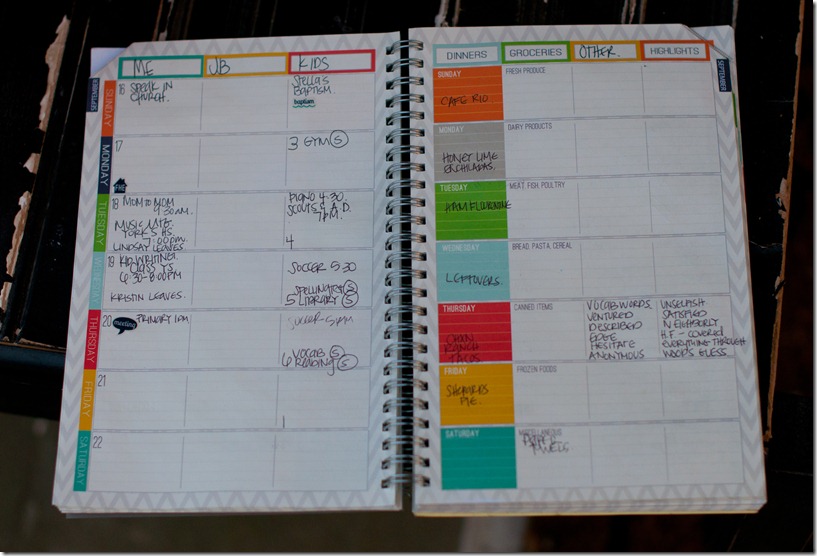 ME
JB
KIDS
SEPTEMBER
SUNDAY
16 SPEAK IN
CHURCH.
Stella's
BAPTISM.
baptism
MONDAY
17
FHE
3 GYM (S)
TUESDAY
18 MOM TO MOM
9:30am.
MUSIC
YORK'S HS.
7:00pm.
LINDSAY LEAVES.
PIANO 4:30
SCOUTS
7PM.
4
WEDNESDAY
19 KID WRITING
CLASS
6:30-8:00PM
KRISTIN LEAVES.
SOCCER 5:30
SPELLING (S)
5 LIBRARY (S)
THURSDAY
20 meeting PRIMARY 1PM
SOCCER - 5PM
VOCAB (S)
6 READING (S)
FRIDAY
21
1
SATURDAY
22
DINNERS
GROCERIES
OTHER.
HIGHLIGHTS
SEPTEMBER
SUNDAY
CAFE RIO
FRESH PRODUCE
MONDAY
HONEY LIME
ENCHILADAS.
DAIRY PRODUCTS
TUESDAY
HAM FLORENTINE
MEAT, FISH, POULTRY
WEDNESDAY
LEFTOVERS.
BREAD, PASTA, CEREAL
THURSDAY
RANCH
TACOS
CANNED ITEMS
VOCAB WORDS
VENTURED
DESCRIBED
HESITATE
ANONYMOUS
UNSELFISH
SATISFIED
H.F. - COVERED
EVERYTHING THROUGH
WOODS GUESS
FRIDAY
PIE.
FROZEN FOODS
SATURDAY
MISCELLANEOUS
PAPER
TWELS